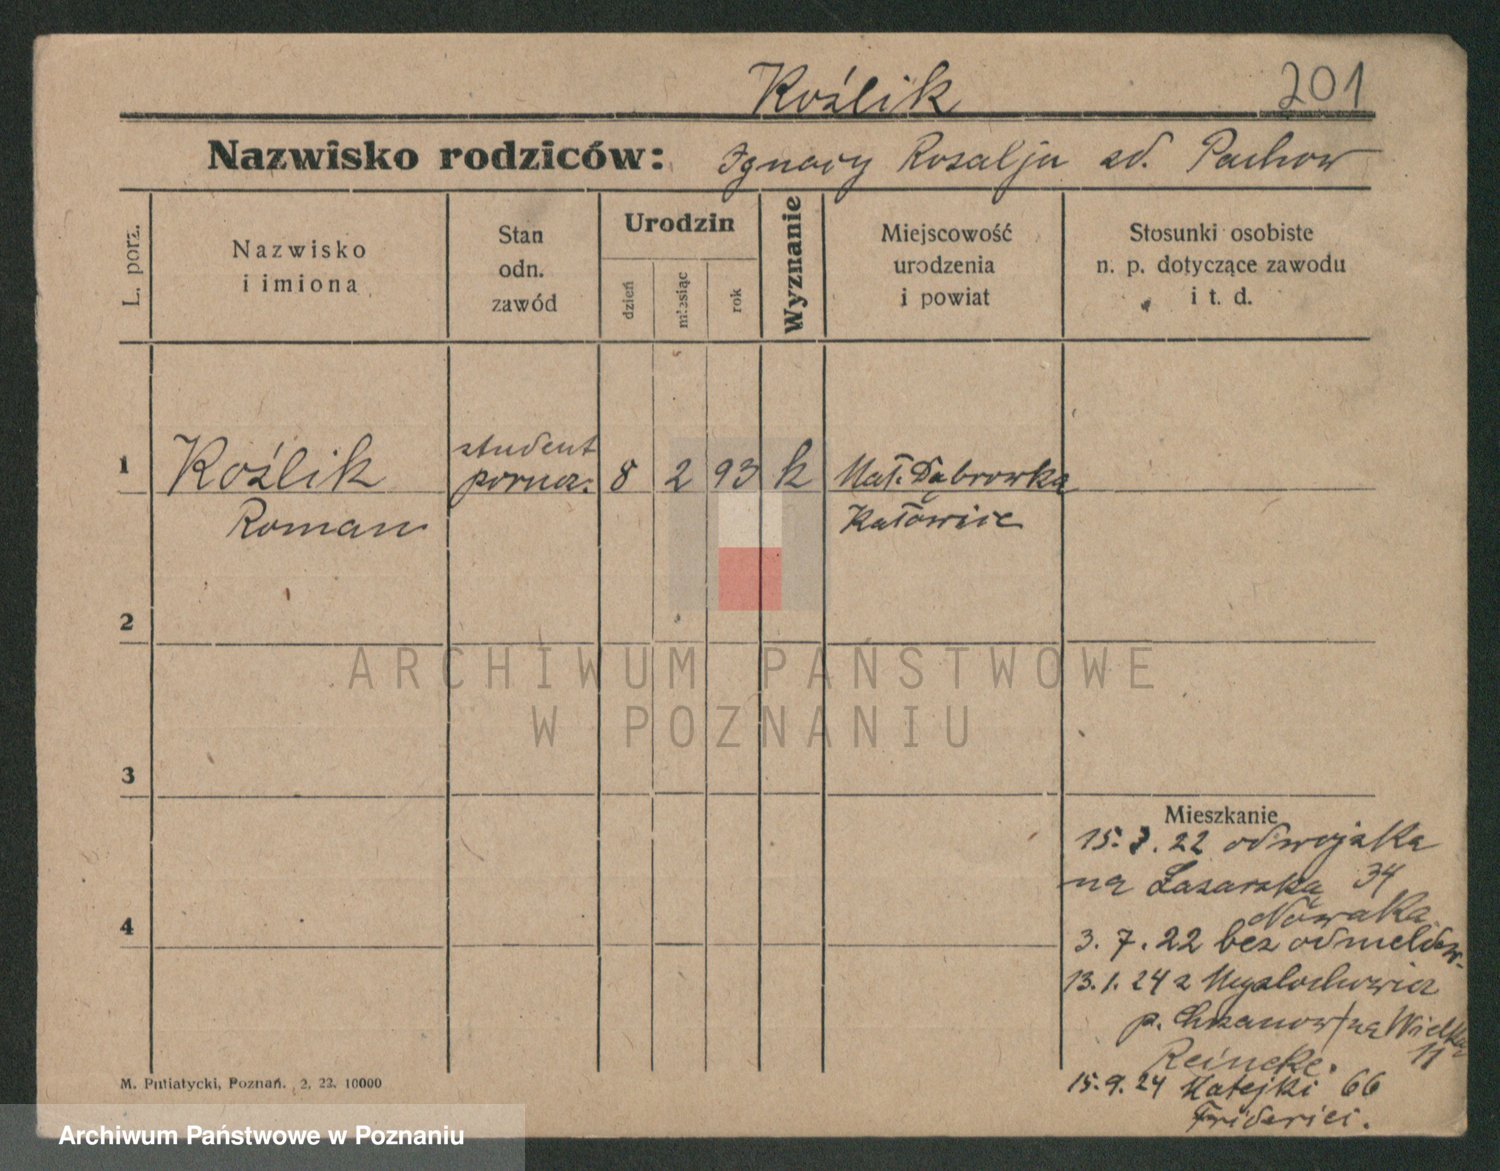 Koślik 201
Nazwisko rodziców: Ignacy Rozalja zd. Pachow
L. porz.
Nazwisko
i imiona
Stan
odn.
zawód
Urodzin
dzień
miesiąc
rok
Wyznanie
Miejscowość
urodzenia
i powiat
Stosunki osobiste
n. p. dotyczące zawodu
i t. d.
1 Koślik student 8 2 93 k Mał. Dąbrowka
Roman Katowice
2
ARCHIWUM PAŃSTWOWE
W POZNANIU
3
Mieszkanie
15. 3. 22 od wojska
na Łazarska 34
Nowaka
4
3. 7. 22 bez odmeldow-
13. 1. 24 z
p. Chrzanow na Wielka
Reineke. 11
15. 9. 24 Matejki 66
Friderici.
M. Putiatycki, Poznań. 2, 22. 10000
Archiwum Państwowe w Poznaniu